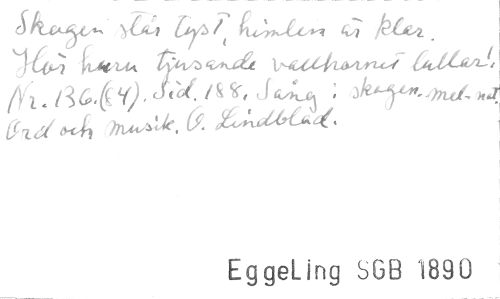 Skogen står tyst, himlen är klar.
Hör huru tjusande vallhornet lullar!
Nr. 136.(84). Sid. 188. Sång i skogen. mel-not.
Ord och musik. O. Lindblad.
EggeLing SGB 1890